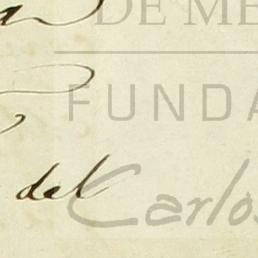 DE ME
FUNDA
del
Carlos